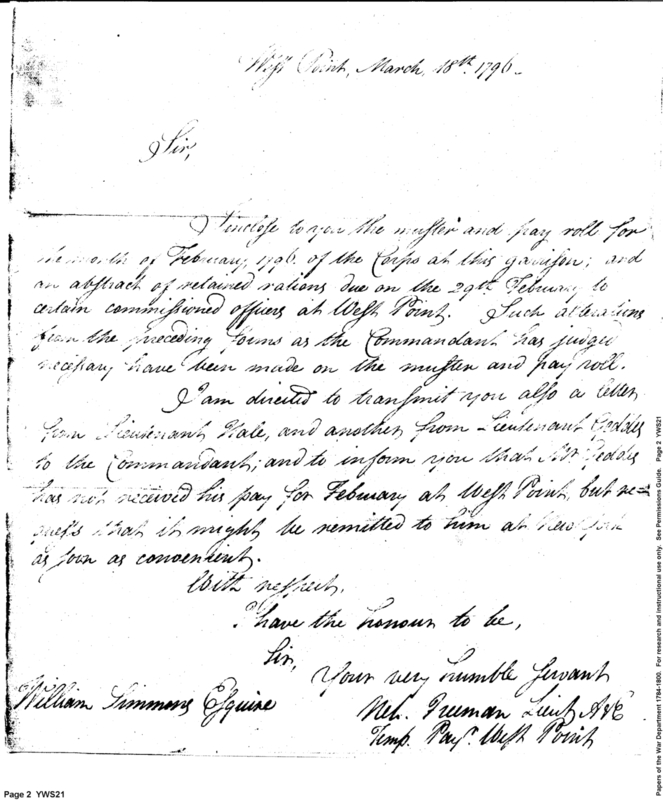 West Point, March, 18th. 1796.
Sir,
I inclose to you the muster and pay roll for
the month of February, 1796. of the Corps at this garrison; and
an abstract of retained rations due on the 29th. February to
certain commissioned officers at West Point. Such alterations
from the preceding forms as the Commandant has judged
necessary have been made on the muster and pay roll.
I am directed to transmit you also a letter
from Lieutenant Hale, and another from Lieutenant Geddes
to the Commandant; and to inform you that Mr Geddes
has not received his pay for February at West Point, but re=
quests that it might be remitted to him at New York
as soon as convenient.
With respect,
I have the honour to be,
Sir,
Your very humble servant
William Simmons Esquire
Neh. Freeman Lieut A&E
Temp. Paym. West Point
Page 2 YWS21
Papers of the War Department 1784-1800. For research and instructional use only. See Permissions Guide. Page 2 YWS21